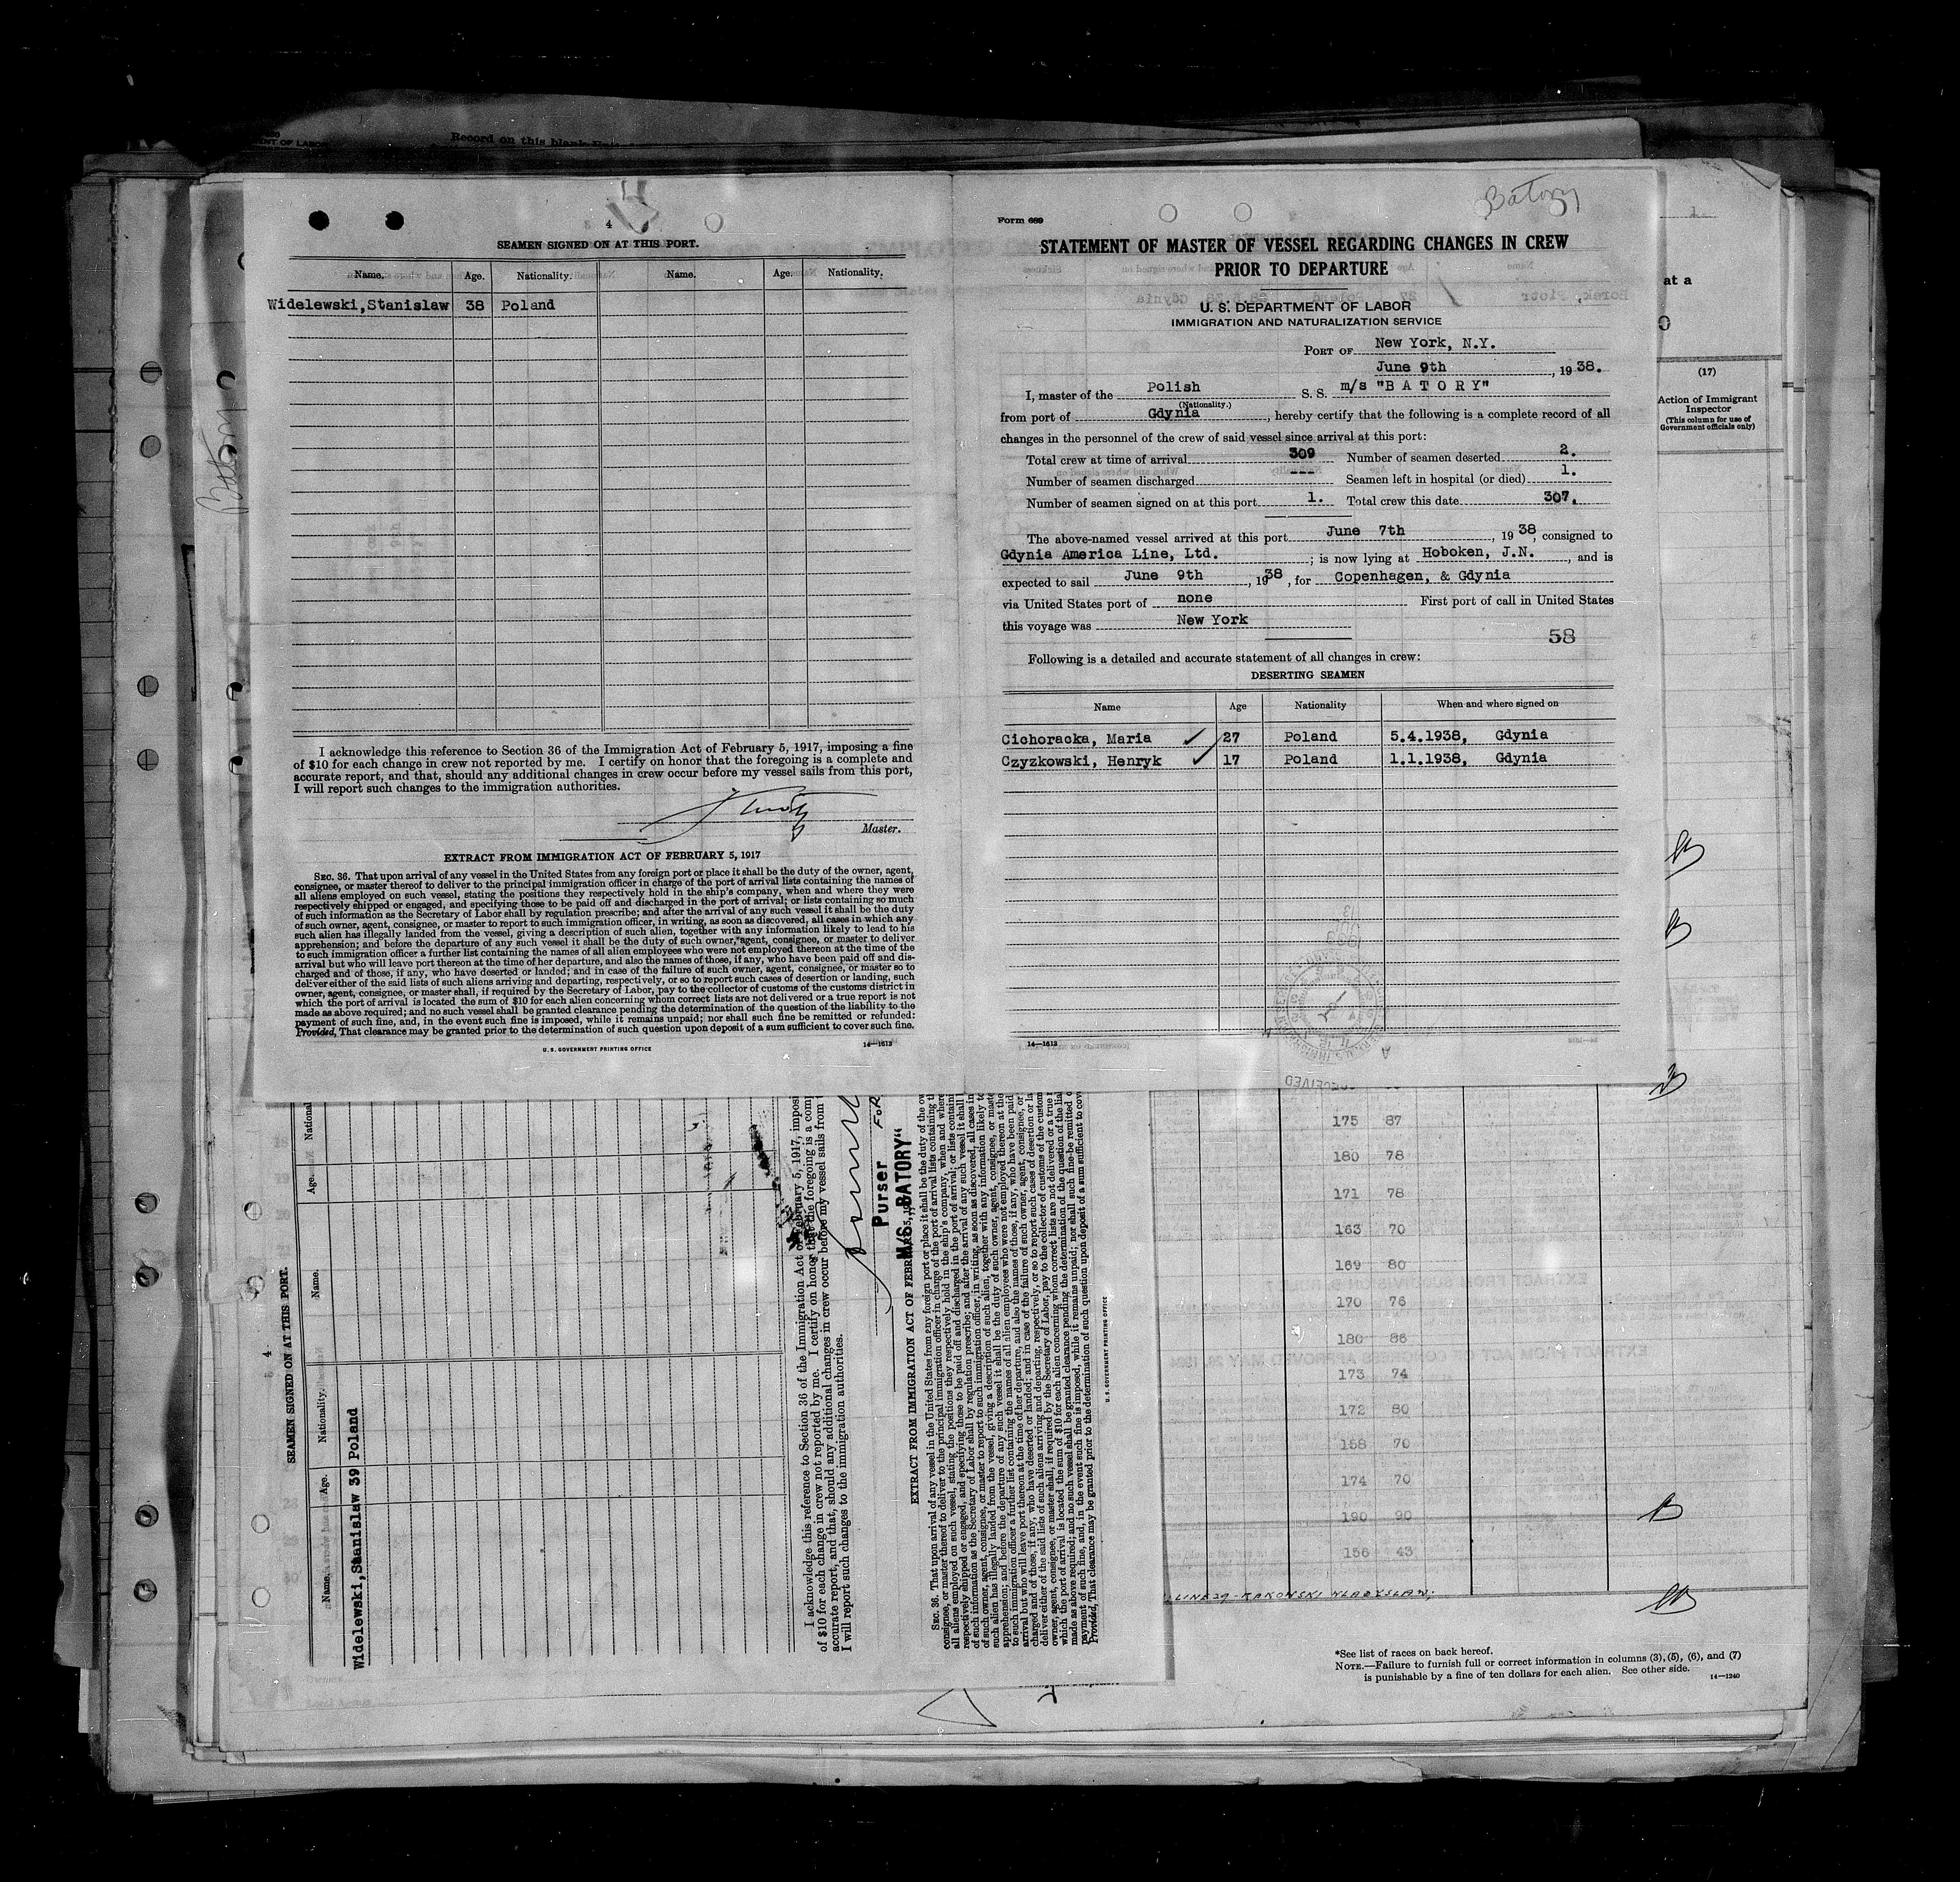 Record on this blank
4
SEAMEN SIGNED ON AT THIS PORT.
Name. Age. Nationality. Name. Age. Nationality.
Widelewski,Stanislaw 38 Poland
I acknowledge this reference to Section 36 of the Immigration Act of February 5, 1917, imposing a fine
of $10 for each change in crew not reported by me. I certify on honor that the foregoing is a complete and
accurate report, and that, should any additional changes in crew occur before my vessel sails from this port,
I will report such changes to the immigration authorities.
Master.
EXTRACT FROM IMMIGRATION ACT OF FEBRUARY 5, 1917
SEC. 36. That upon arrival of any vessel in the United States from any foreign port or place it shall be the duty of the owner, agent,
consignee, or master thereof to deliver to the principal immigration officer in charge of the port of arrival lists containing the names of
all aliens employed on such vessel, stating the positions they respectively hold in the ship's company, when and where they were
respectively shipped or engaged, and specifying those to be paid off and discharged in the port of arrival; or lists containing so much
of such information as the Secretary of Labor shall by regulation prescribe; and after the arrival of any such vessel it shall be the duty
of such owner, agent, consignee, or master to report to such immigration officer, in writing, as soon as discovered, all cases in which any
such alien has illegally landed from the vessel, giving a description of such alien, together with any information likely to lead to his
apprehension; and before the departure of any such vessel it shall be the duty of such owner, agent, consignee, or master to deliver
to such immigration officer a further list containing the names of all alien employees who were not employed thereon at the time of the
arrival but who will leave port thereon at the time of her departure, and also the names of those, if any, who have been paid off and dis-
charged and of those, if any, who have deserted or landed; and in case of the failure of such owner, agent, consignee, or master so to
deliver either of the said lists of such aliens arriving and departing, respectively, or so to report such cases of desertion or landing, such
owner, agent, consignee, or master shall, if required by the Secretary of Labor, pay to the collector of customs of the customs district in
which the port of arrival is located the sum of $10 for each alien concerning whom correct lists are not delivered or a true report is not
made as above required; and no such vessel shall be granted clearance pending the determination of the question of the liability to the
payment of such fine, and, in the event such fine is imposed, while it remains unpaid; nor shall such fine be remitted or refunded:
Provided, That clearance may be granted prior to the determination of such question upon deposit of a sum sufficient to cover such fine.
U. S. GOVERNMENT PRINTING OFFICE 14—1613
Batory
Form 689
STATEMENT OF MASTER OF VESSEL REGARDING CHANGES IN CREW
PRIOR TO DEPARTURE
U. S. DEPARTMENT OF LABOR
IMMIGRATION AND NATURALIZATION SERVICE
PORT OF New York, N.Y.
June 9th, 1938.
I, master of the Polish S. S. m/s "B A T O R Y"
(Nationality.)
from port of Gdynia, hereby certify that the following is a complete record of all
changes in the personnel of the crew of said vessel since arrival at this port:
Total crew at time of arrival 309 Number of seamen deserted 2.
Number of seamen discharged --- Seamen left in hospital (or died) 1.
Number of seamen signed on at this port 1. Total crew this date 307.
The above-named vessel arrived at this port June 7th, 1938, consigned to
Gdynia America Line, Ltd. ; is now lying at Hoboken, J.N., and is
expected to sail June 9th, 1938, for Copenhagen, & Gdynia
via United States port of none First port of call in United States
this voyage was New York
58
Following is a detailed and accurate statement of all changes in crew:
DESERTING SEAMEN
Name Age Nationality When and where signed on
Cichoracka, Maria ✓ 27 Poland 5.4.1938, Gdynia
Czyzkowski, Henryk ✓ 17 Poland 1.1.1938, Gdynia
14—1613
at a
(17)
Action of Immigrant
Inspector
(This column for use of
Government officials only)
Batory
4
SEAMEN SIGNED ON AT THIS PORT.
Name. Age. Nationality. Name. Age. National
Widelewski,Stanislaw 39 Poland
I acknowledge this reference to Section 36 of the Immigration Act of February 5, 1917, impos
of $10 for each change in crew not reported by me. I certify on honor that the foregoing is a com
accurate report, and that, should any additional changes in crew occur before my vessel sails from
I will report such changes to the immigration authorities.
Purser FOR
M/S „BATORY“
EXTRACT FROM IMMIGRATION ACT OF FEBRUARY 5, 1917
SEC. 36. That upon arrival of any vessel in the United States from any foreign port or place it shall be the duty of the ow
U. S. GOVERNMENT PRINTING OFFICE
175 87
180 78
171 78
163 70
169 80
170 76
180 86
173 74
172 80
158 70
174 70
190 90
156 43
*See list of races on back hereof.
NOTE.—Failure to furnish full or correct information in columns (3), (5), (6), and (7)
is punishable by a fine of ten dollars for each alien. See other side. 14—1240